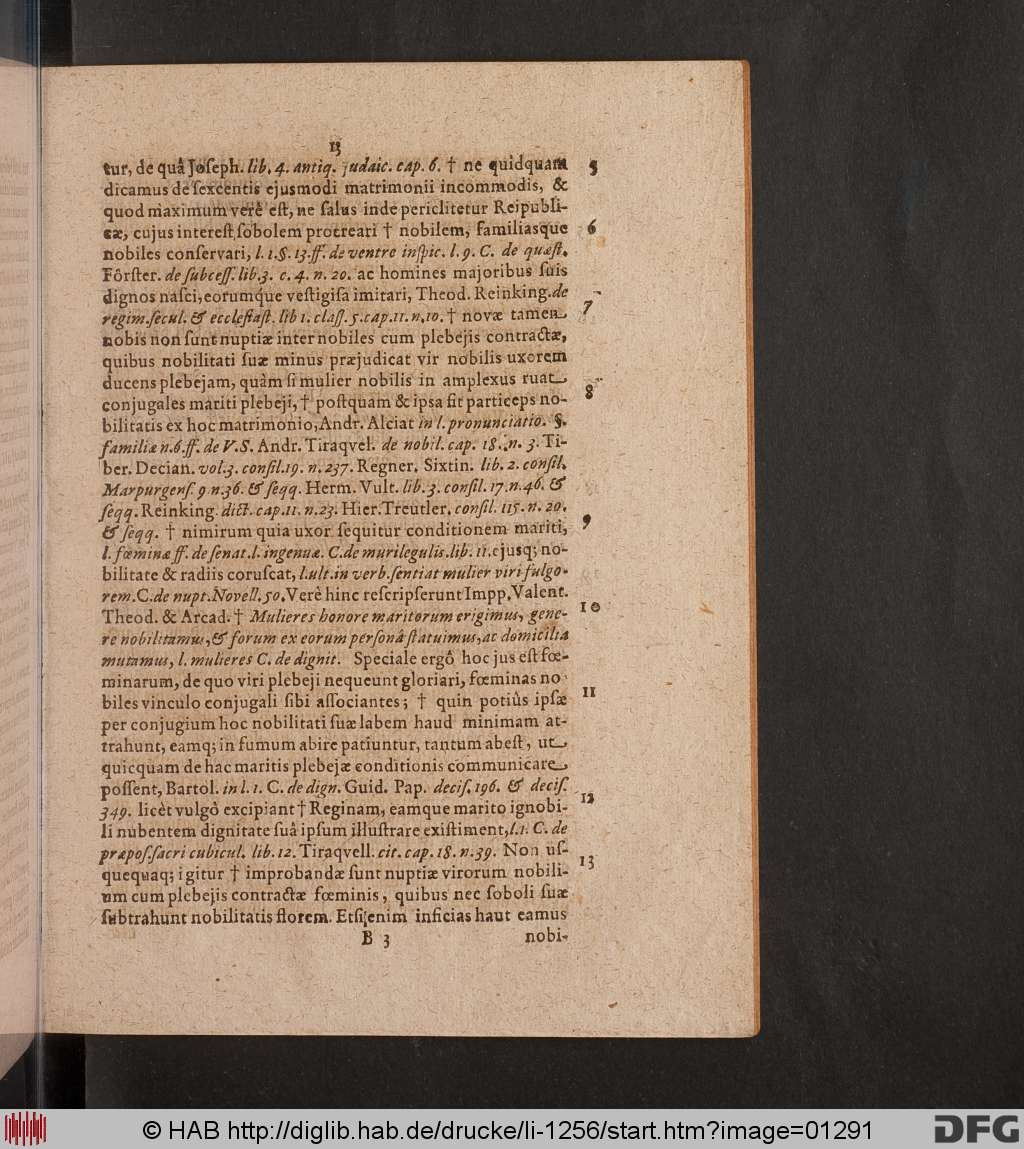 13
tur, de quâ Joſeph. lib. 4. antiq. judaic. cap. 6. † ne quidquam 5
dicamus de ſexcentis ejusmodi matrimonii incommodis, &
quod maximum verè eſt, ne ſalus inde periclitetur Reipubli-
cæ, cujus intereſt ſobolem procreari † nobilem, familiasque 6
nobiles conſervari, l. 1. §. 13. ff. de ventre inſpic. l. 9. C. de quæſt.
Fôrſter. de ſubceſſ. lib. 3. c. 4. n. 20. ac homines majoribus ſuis
dignos naſci, eorumq́ue veſtigiſa imitari, Theod. Reinking. de
regim. ſecul. & eccleſiaſt. lib 1. claſſ. 5. cap. 11. n. 10. † novæ tamen 7
nobis non ſunt nuptiæ inter nobiles cum plebejis contractæ,
quibus nobilitati ſuæ minus præjudicat vir nobilis uxorem
ducens plebejam, quàm ſi mulier nobilis in amplexus ruat
conjugales mariti plebeji, † poſtquam & ipſa fit particeps no- 8
bilitatis ex hoc matrimonio, Andr. Alciat in l. pronunciatio. §.
familiæ n. 6. ff. de V. S. Andr. Tiraqvel. de nobil. cap. 18. n. 3. Ti-
ber. Decian. vol. 3. conſil. 19. n. 237. Regner. Sixtin. lib. 2. conſil.
Marpurgenſ. 9 n. 36. & ſeqq. Herm. Vult. lib. 3. conſil. 17. n. 46. &
ſeqq. Reinking. dict. cap. 11. n. 23. Hier. Treutler. conſil. 115. n. 20.
& ſeqq. † nimirum quia uxor ſequitur conditionem mariti, 9
l. fœminæ ff. de ſenat. l. ingenuæ. C. de murilegulis. lib. 11. ejusq; no-
bilitate & radiis coruſcat, l. ult. in verb. ſentiat mulier viri fulgo-
rem. C. de nupt. Novell. 50. Verè hinc reſcripſerunt Impp. Valent.
Theod. & Arcad. † Mulieres honore maritorum erigimus, gene- 10
re nobilitamus, & forum ex eorum perſonâ ſtatuimus, ac domicilia
mutamus, l. mulieres C. de dignit. Speciale ergô hoc jus eſt fœ-
minarum, de quo viri plebeji nequeunt gloriari, fœminas no
biles vinculo conjugali ſibi aſſociantes; † quin potiùs ipſæ 11
per conjugium hoc nobilitati ſuæ labem haud minimam at-
trahunt, eamq; in fumum abire patiuntur, tantum abeſt, ut
quicquam de hac maritis plebejæ conditionis communicare
poſſent, Bartol. in l. 1. C. de dign. Guid. Pap. deciſ. 196. & deciſ.
349. licèt vulgô excipiant † Reginam, eamque marito ignobi- 12
li nubentem dignitate ſuâ ipſum illuſtrare exiſtiment, l. 1. C. de
præpoſ. ſacri cubicul. lib. 12. Tiraqvell. cit. cap. 18. n. 39. Non uſ-
quequaq; igitur † improbandæ ſunt nuptiæ virorum nobili- 13
um cum plebejis contractæ fœminis, quibus nec ſoboli ſuæ
ſubtrahunt nobilitatis florem. Etſi enim inficias haut eamus
B 3 nobi-
© HAB http://diglib.hab.de/drucke/li-1256/start.htm?image=01291
DFG